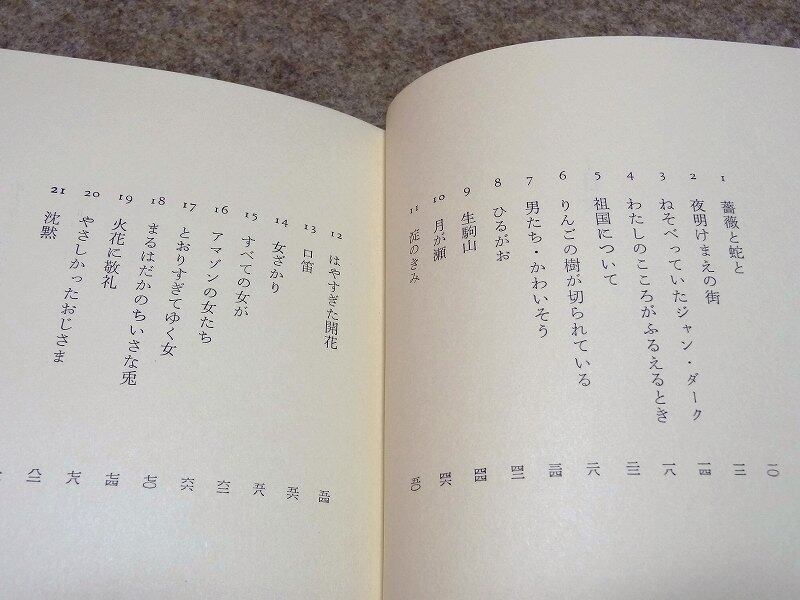 1 薔薇と蛇と 一〇
2 夜明けまえの街 一二
3 ねそべっていたジャン・ダーク 一四
4 わたしのこころがふるえるとき 一八
5 祖国について 二二
6 りんごの樹が切られている 二八
7 男たち・かわいそう 三四
8 ひるがお 四二
9 生駒山 四四
10 月が瀬 四六
11 淀のきみ 五〇
12 はやすぎた開花 五四
13 口笛 五六
14 女ざかり 五八
15 すべての女が 六二
16 アマゾンの女たち 六六
17 とおりすぎてゆく女 七〇
18 まるはだかのちいさな兎 七四
19 火花に敬礼 七八
20 やさしかったおじさま 八二
21 沈黙